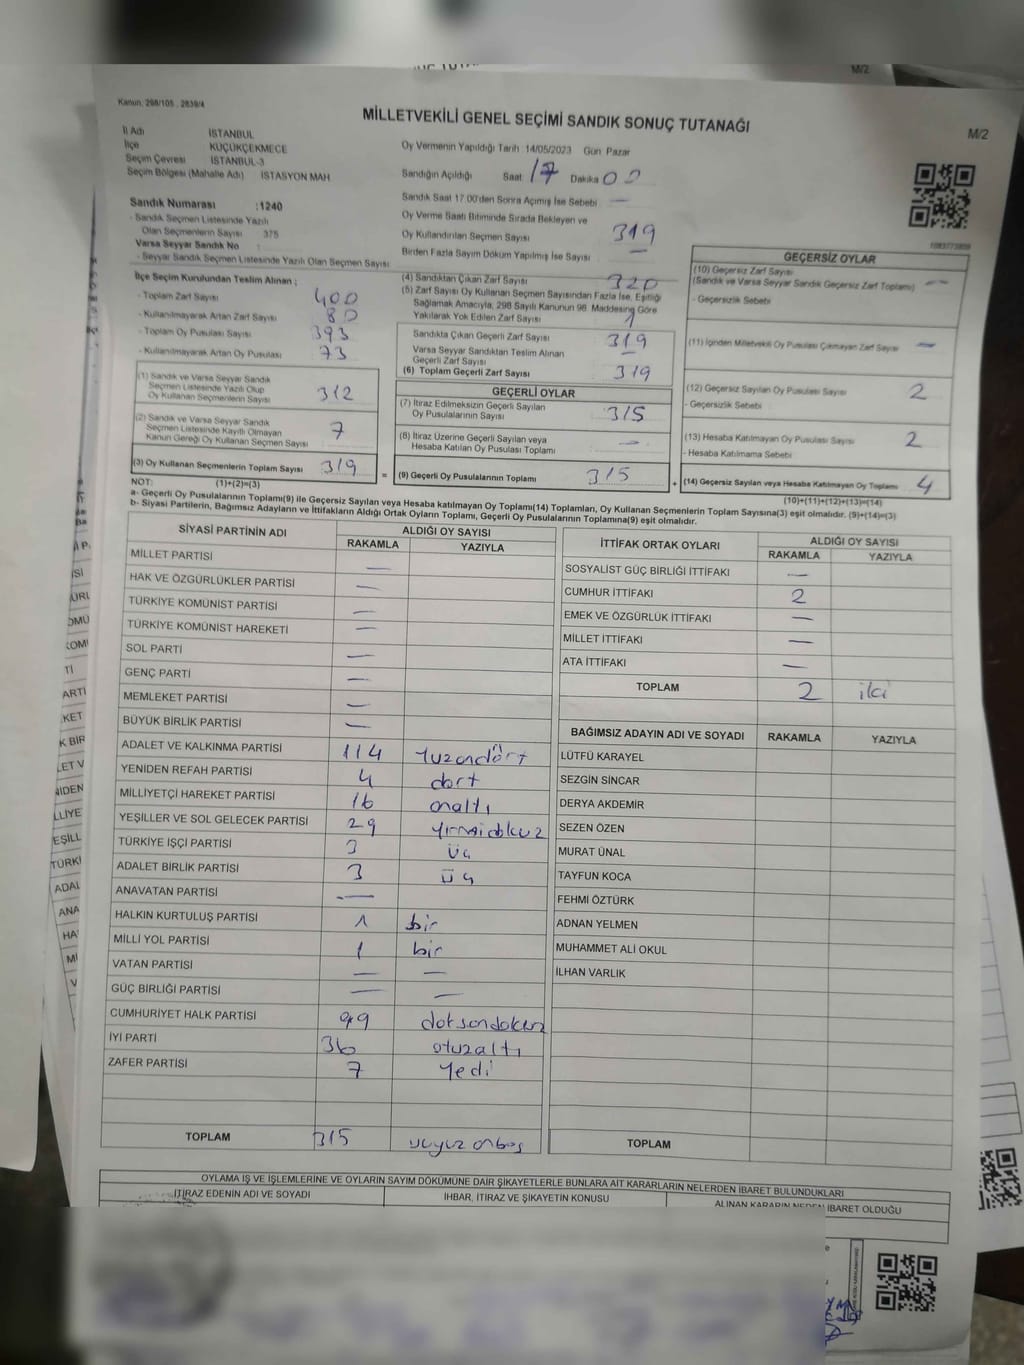 M/2
Kanun, 298/105 , 2839/4
MİLLETVEKİLİ GENEL SEÇİMİ SANDIK SONUÇ TUTANAĞI
M/2
İl Adı İSTANBUL
İlçe KÜÇÜKÇEKMECE
Seçim Çevresi İSTANBUL-3
Seçim Bölgesi (Mahalle Adı) İSTASYON MAH.
Oy Vermenin Yapıldığı Tarih :14/05/2023 Gün Pazar
Sandığın Açıldığı Saat 17 Dakika 00
Sandık Saat 17:00'den Sonra Açımış İse Sebebi —
Sandık Numarası :1240
- Sandık Seçmen Listesinde Yazılı
Olan Seçmenlerin Sayısı 375
Varsa Seyyar Sandık No :
- Seyyar Sandık Seçmen Listesinde Yazılı Olan Seçmen Sayısı
Oy Verme Saati Bitiminde Sırada Bekleyen ve
Oy Kullandırılan Seçmen Sayısı 319
Birden Fazla Sayım Döküm Yapılmış İse Sayısı —
İlçe Seçim Kurulundan Teslim Alınan ;
- Toplam Zarf Sayısı 400
- Kullanılmayarak Artan Zarf Sayısı 80
- Toplam Oy Pusulası Sayısı 393
- Kullanılmayarak Artan Oy Pusulası 73
(4) Sandıktan Çıkan Zarf Sayısı 320
(5) Zarf Sayısı Oy Kullanan Seçmen Sayısından Fazla İse, Eşitliği
Sağlamak Amacıyla, 298 Sayılı Kanunun 98. Maddesine Göre
Yakılarak Yok Edilen Zarf Sayısı 1
Sandıkta Çıkan Geçerli Zarf Sayısı 319
Varsa Seyyar Sandıktan Teslim Alınan
Geçerli Zarf Sayısı —
(6) Toplam Geçerli Zarf Sayısı 319
(1) Sandık ve Varsa Seyyar Sandık
Seçmen Listesinde Yazılı Olup
Oy Kullanan Seçmenlerin Sayısı 312
(2) Sandık ve Varsa Seyyar Sandık
Seçmen Listesinde Kayıtlı Olmayan
Kanun Gereği Oy Kullanan Seçmen Sayısı 7
(3) Oy Kullanan Seçmenlerin Toplam Sayısı 319
GEÇERLİ OYLAR
(7) İtiraz Edilmeksizin Geçerli Sayılan
Oy Pusulalarının Sayısı 315
(8) İtiraz Üzerine Geçerli Sayılan veya
Hesaba Katılan Oy Pusulası Toplamı —
= (9) Geçerli Oy Pusulalarının Toplamı 315 +
GEÇERSİZ OYLAR
(10) Geçersiz Zarf Sayısı
(Sandık ve Varsa Seyyar Sandık Geçersiz Zarf Toplamı) —
- Geçersizlik Sebebi
(11) İçinden Milletvekili Oy Pusulası Çıkmayan Zarf Sayısı —
(12) Geçersiz Sayılan Oy Pusulası Sayısı 2
- Geçersizlik Sebebi :
(13) Hesaba Katılmayan Oy Pusulası Sayısı 2
- Hesaba Katılmama Sebebi
(14) Geçersiz Sayılan veya Hesaba Katılmayan Oy Toplamı 4
NOT: (1)+(2)=(3)
(10)+(11)+(12)+(13)=(14)
a- Geçerli Oy Pusulalarının Toplamı(9) ile Geçersiz Sayılan veya Hesaba katılmayan Oy Toplamı(14) Toplamları, Oy Kullanan Seçmenlerin Toplam Sayısına(3) eşit olmalıdır. (9)+(14)=(3)
b- Siyasi Partilerin, Bağımsız Adayların ve İttifakların Aldığı Ortak Oyların Toplamı, Geçerli Oy Pusulalarının Toplamına(9) eşit olmalıdır.
SİYASİ PARTİNİN ADI ALDIĞI OY SAYISI
RAKAMLA YAZIYLA
MİLLET PARTİSİ —
HAK VE ÖZGÜRLÜKLER PARTİSİ —
TÜRKİYE KOMÜNİST PARTİSİ —
TÜRKİYE KOMÜNİST HAREKETİ —
SOL PARTİ —
GENÇ PARTİ —
MEMLEKET PARTİSİ —
BÜYÜK BİRLİK PARTİSİ —
ADALET VE KALKINMA PARTİSİ 114 yüzondört
YENİDEN REFAH PARTİSİ 4 dört
MİLLİYETÇİ HAREKET PARTİSİ 16 onaltı
YEŞİLLER VE SOL GELECEK PARTİSİ 29 yirmidokuz
TÜRKİYE İŞÇİ PARTİSİ 3 üç
ADALET BİRLİK PARTİSİ 3 üç
ANAVATAN PARTİSİ —
HALKIN KURTULUŞ PARTİSİ 1 bir
MİLLİ YOL PARTİSİ 1 bir
VATAN PARTİSİ — —
GÜÇ BİRLİĞİ PARTİSİ — —
CUMHURİYET HALK PARTİSİ 99 doksandokuz
İYİ PARTİ 36 otuzaltı
ZAFER PARTİSİ 7 yedi
TOPLAM 315 üçyüz onbeş
İTTİFAK ORTAK OYLARI ALDIĞI OY SAYISI
RAKAMLA YAZIYLA
SOSYALİST GÜÇ BİRLİĞİ İTTİFAKI —
CUMHUR İTTİFAKI 2
EMEK VE ÖZGÜRLÜK İTTİFAKI —
MİLLET İTTİFAKI —
ATA İTTİFAKI —
TOPLAM 2 iki
BAĞIMSIZ ADAYIN ADI VE SOYADI RAKAMLA YAZIYLA
LÜTFÜ KARAYEL
SEZGİN SİNCAR
DERYA AKDEMİR
SEZEN ÖZEN
MURAT ÜNAL
TAYFUN KOCA
FEHMİ ÖZTÜRK
ADNAN YELMEN
MUHAMMET ALİ OKUL
İLHAN VARLIK
TOPLAM
OYLAMA İŞ VE İŞLEMLERİNE VE OYLARIN SAYIM DÖKÜMÜNE DAİR ŞİKAYETLERLE BUNLARA AİT KARARLARIN NELERDEN İBARET BULUNDUKLARI
İTİRAZ EDENİN ADI VE SOYADI İHBAR, İTİRAZ VE ŞİKAYETİN KONUSU ALINAN KARARIN NEDEN İBARET OLDUĞU